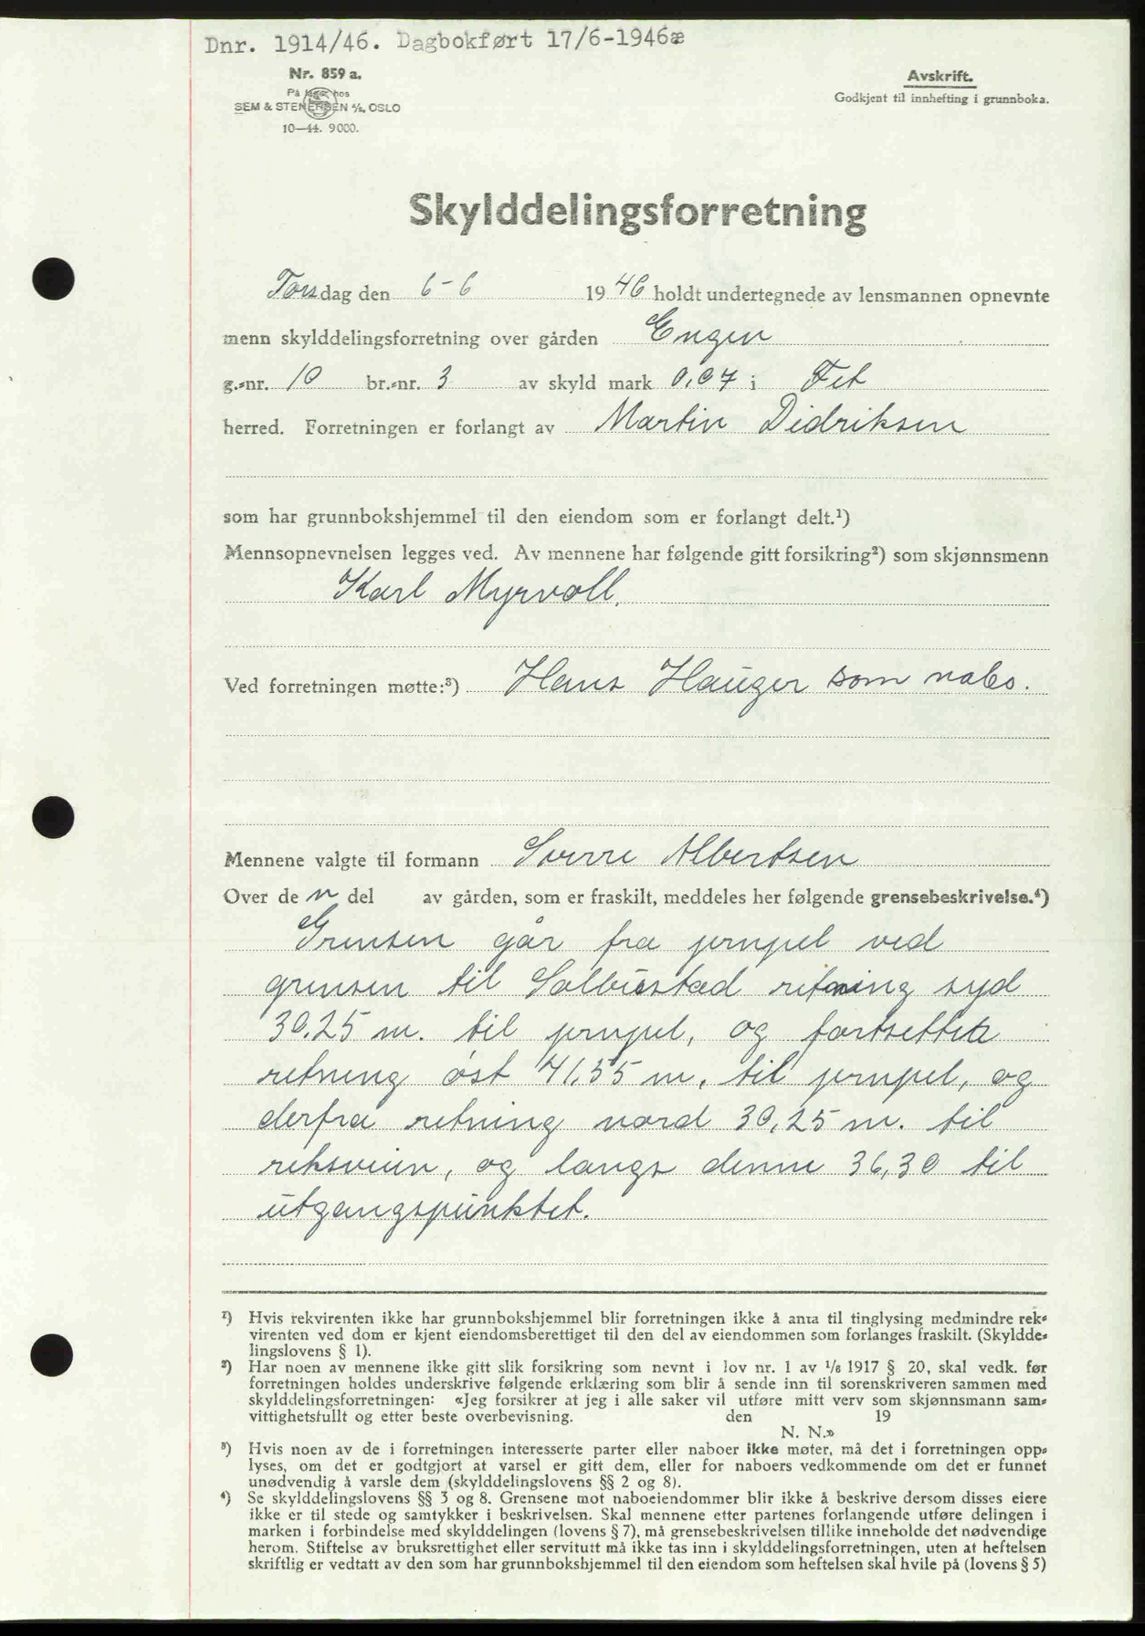 Dnr. 1914/46. Dagbokført 17/6-1946æ
Nr. 859 a.
På lager hos
SEM & STENERSEN A/S, OSLO
10—44. 9000.
Avskrift.
Godkjent til innhefting i grunnboka.
Skylddelingsforretning
Torsdag den 6-6 1946 holdt undertegnede av lensmannen opnevnte
menn skylddelingsforretning over gården Engen
g.-nr. 10 br.-nr. 3 av skyld mark 0,07 i Fet
herred. Forretningen er forlangt av Martin Didriksen
som har grunnbokshjemmel til den eiendom som er forlangt delt.¹)
Mennsopnevnelsen legges ved. Av mennene har følgende gitt forsikring²) som skjønnsmenn
Karl Myrvoll.
Ved forretningen møtte:³) Hans Hauger som nabo.
Mennene valgte til formann Sverre Albertsen
Over den del av gården, som er fraskilt, meddeles her følgende grensebeskrivelse.⁴)
Grensen går fra jernpel ved
grensen til Solbustad retning syd
30,25 m. til jernpel, og fortsetter
retning øst 41,55 m. til jernpel, og
derfra retning nord 30,25 m. til
riksveien, og langs denne 36,30 til
utgangspunktet.
¹) Hvis rekvirenten ikke har grunnbokshjemmel blir forretningen ikke å anta til tinglysing medmindre rek-
virenten ved dom er kjent eiendomsberettiget til den del av eiendommen som forlanges fraskilt. (Skyldde-
lingslovens § 1).
²) Har noen av mennene ikke gitt slik forsikring som nevnt i lov nr. 1 av 1/6 1917 § 20, skal vedk. før
forretningen holdes underskrive følgende erklæring som blir å sende inn til sorenskriveren sammen med
skylddelingsforretningen: «Jeg forsikrer at jeg i alle saker vil utføre mitt verv som skjønnsmann sam-
vittighetsfullt og etter beste overbevisning. den 19
N. N.»
³) Hvis noen av de i forretningen interesserte parter eller naboer ikke møter, må det i forretningen opp-
lyses, om det er godtgjort at varsel er gitt dem, eller for naboers vedkommende om det er funnet
unødvendig å varsle dem (skylddelingslovens §§ 2 og 8).
⁴) Se skylddelingslovens §§ 3 og 8. Grensene mot naboeiendommer blir ikke å beskrive dersom disses eiere
ikke er til stede og samtykker i beskrivelsen. Skal mennene etter partenes forlangende utføre delingen i
marken i forbindelse med skylddelingen (lovens § 7), må grensebeskrivelsen tillike inneholde det nødvendige
herom. Stiftelse av bruksrettighet eller servitutt må ikke tas inn i skylddelingsforretningen, uten at heftelsen
skriftlig er vedtatt av den som har grunnbokshjemmel til den eiendom som heftelsen skal hvile på (lovens § 5)